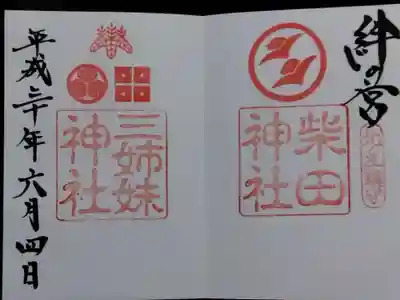 絆の宮
柴田
神社
三姉妹
神社
平成三十年六月四日